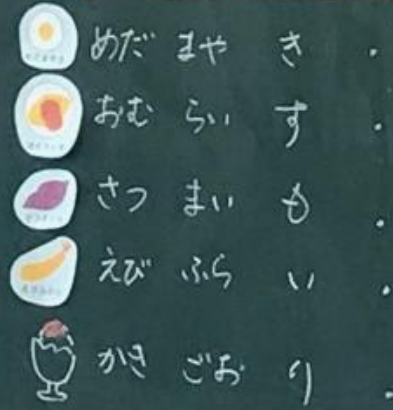 めだ まや き .
おむ らい す .
さつ まい も .
えび ふら い .
かき ごお り .